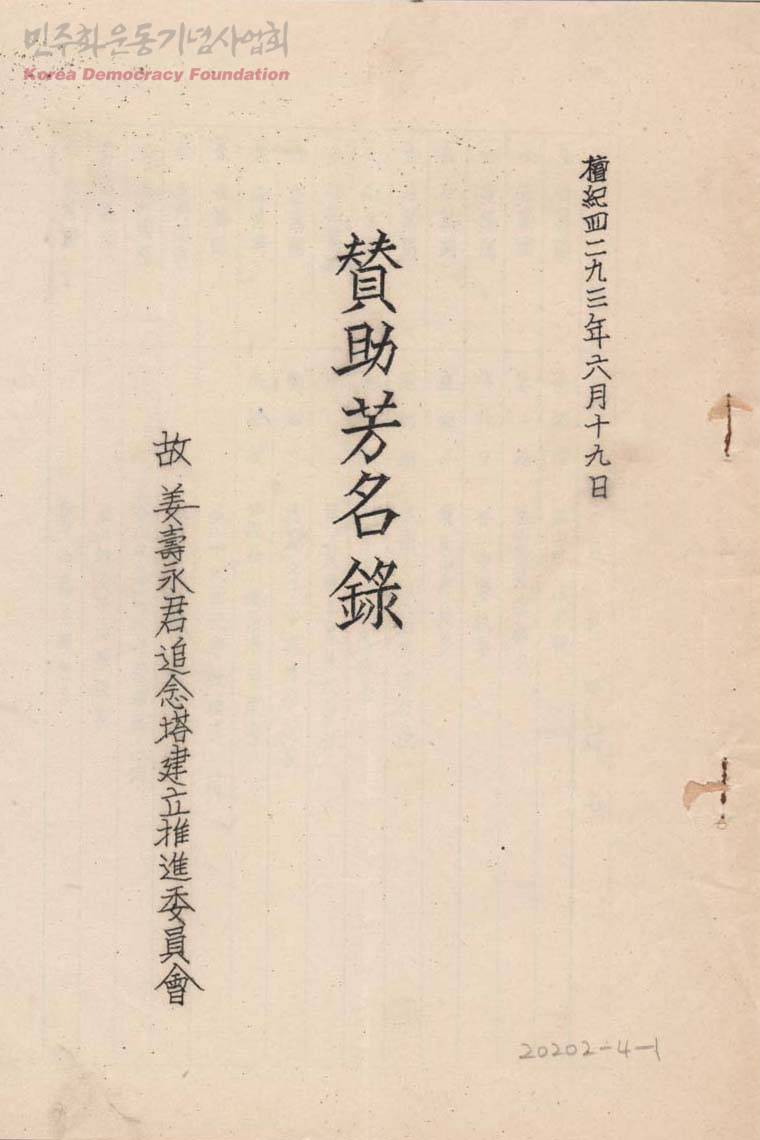 민주화운동기념사업회
Korea Democracy Foundation
檀紀四二九三年六月十九日
賛助芳名錄
故 姜壽永君追念塔建立推進委員會
20202-4-1